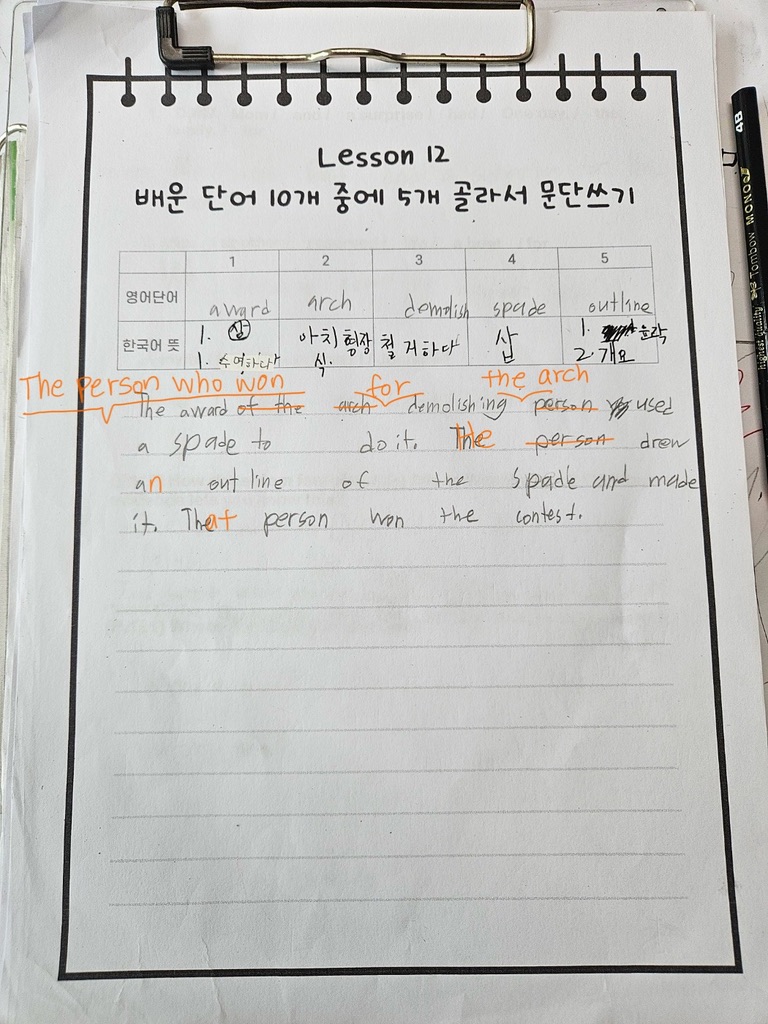 Lesson 12
배운 단어 10개 중에 5개 골라서 문단쓰기
1 2 3 4 5
영어단어 award arch demolish spade outline
한국어 뜻 1. 상 아치형장 철거하다 삽 1. 윤곽
1. 수여하다 식. 2. 개요
The person who won for the arch
The award of the arch demolishing person used
a spade to do it. The person drew
an outline of the spade and made
it. That person won the contest.
4B
Tombow MONO
highest quality